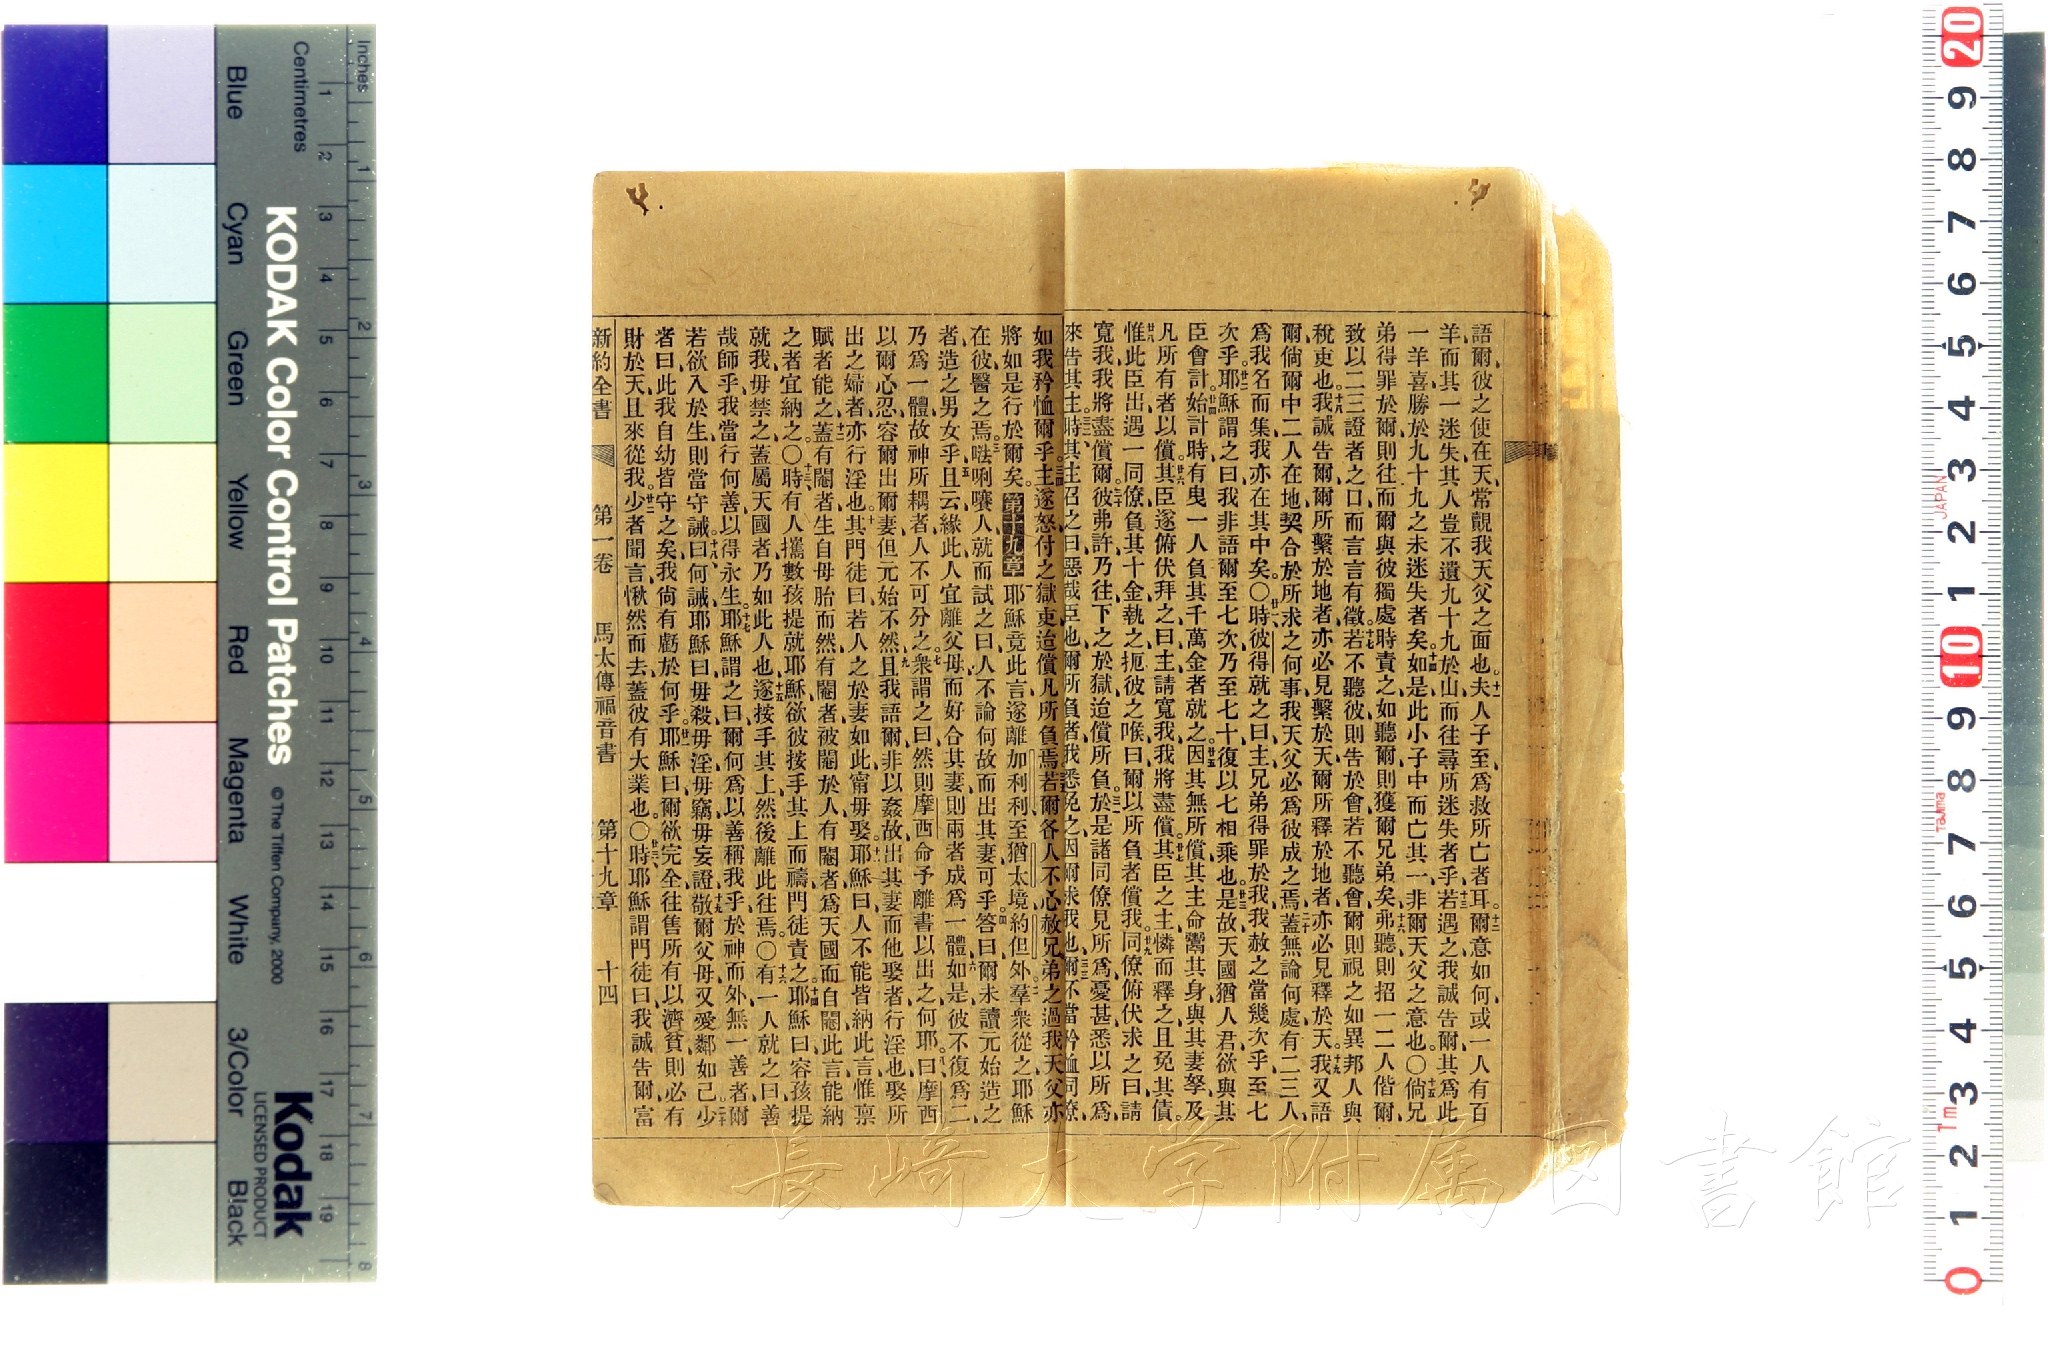 語爾彼之使在天常覿我天父之面也夫人子至爲救所亡者耳爾意如何或一人有百
羊而其一迷失其人豈不遺九十九於山而往尋所迷失者乎若遇之我誠告爾其爲此
一羊喜勝於九十九之未迷失者矣如是此小子中而亡其一非爾天父之意也〇倘兄
弟得罪於爾則往而爾與彼獨處時責之如聽爾則獲爾兄弟矣弗聽則招一二人偕爾
致以二三證者之口而言言有徵若不聽彼則告於會若不聽會爾則視之如異邦人與
稅吏也我誠告爾爾所繫於地者亦必見繫於天爾所釋於地者亦必見釋於天我又語
爾倘爾中二人在地契合於所求之何事我天父必爲彼成之焉蓋無論何處有二三人
爲我名而集我亦在其中矣〇時彼得就之曰主兄弟得罪於我我赦之當幾次乎至七
次乎耶穌謂之曰我非語爾至七次乃至七十復以七相乘也是故天國猶人君欲與其
臣會計始計時有曳一人負其千萬金者就之因其無所償其主命鬻其身與其妻孥及
凡所有者以償其臣遂俯伏拜之曰主請寬我我將盡償其臣之主憐而釋之且免其債
惟此臣出遇一同僚負其十金執之扼彼之喉曰爾以所負者償我同僚俯伏求之曰請
寬我我將盡償爾彼弗許乃往下之於獄迨償所負於是諸同僚見所爲憂甚悉以所爲
來告其主時其主召之曰惡哉臣也爾所負者我悉免之因爾求我也爾不當矜恤同僚
如我矜恤爾乎主遂怒付之獄吏迨償凡所負焉若爾各人不心赦兄弟之過我天父亦
將如是行於爾矣第十九章耶穌竟此言遂離加利利至猶太境約但外羣衆從之耶穌
在彼醫之焉𠵽唎㘔人就而試之曰人不論何故而出其妻可乎答曰爾未讀元始造之
者造之男女乎且云緣此人宜離父母而好合其妻則兩者成爲一體如是彼不復爲二
乃爲一體故神所耦者人不可分之衆謂之曰然則摩西命予離書以出之何耶曰摩西
以爾心忍容爾出爾妻但元始不然且我語爾非以姦故出其妻而他娶者行淫也娶所
出之婦者亦行淫也其門徒曰若人之於妻如此甯毋娶耶穌曰人不能皆納此言惟禀
賦者能之蓋有閹者生自母胎而然有閹者被閹於人有閹者爲天國而自閹此言能納
之者宜納之〇時有人攜數孩提就耶穌欲彼按手其上而禱門徒責之耶穌曰容孩提
就我毋禁之蓋屬天國者乃如此人也遂按手其上然後離此往焉〇有一人就之曰善
哉師乎我當行何善以得永生耶穌謂之曰爾何爲以善稱我乎於神而外無一善者爾
若欲入於生則當守誡曰何誡耶穌曰毋殺毋淫毋竊毋妄證敬爾父母又愛鄰如己少
者曰此我自幼皆守之矣我尙有虧於何乎耶穌曰爾欲完全往售所有以濟貧則必有
財於天且來從我少者聞言愀然而去蓋彼有大業也〇時耶穌謂門徒曰我誠告爾富
新約全書 第一卷 馬太傳福音書 第十九章 十四
Inches
Centimetres
KODAK Color Control Patches © The Tiffen Company, 2000
Kodak
LICENSED PRODUCT
Blue Cyan Green Yellow Red Magenta White 3/Color Black
JAPAN
Tajima
長崎大学附属図書館